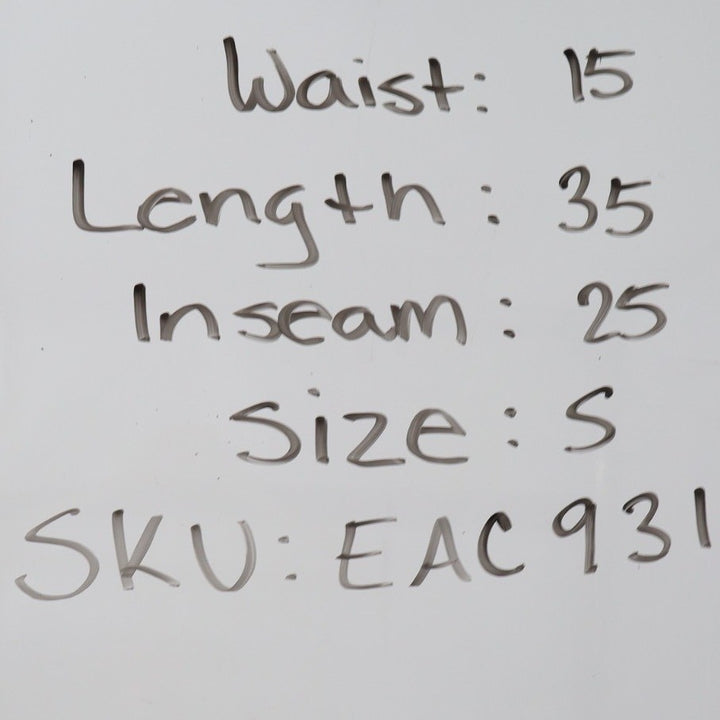 Waist: 15
Length: 35
Inseam: 25
Size: S
SKU: EAC931